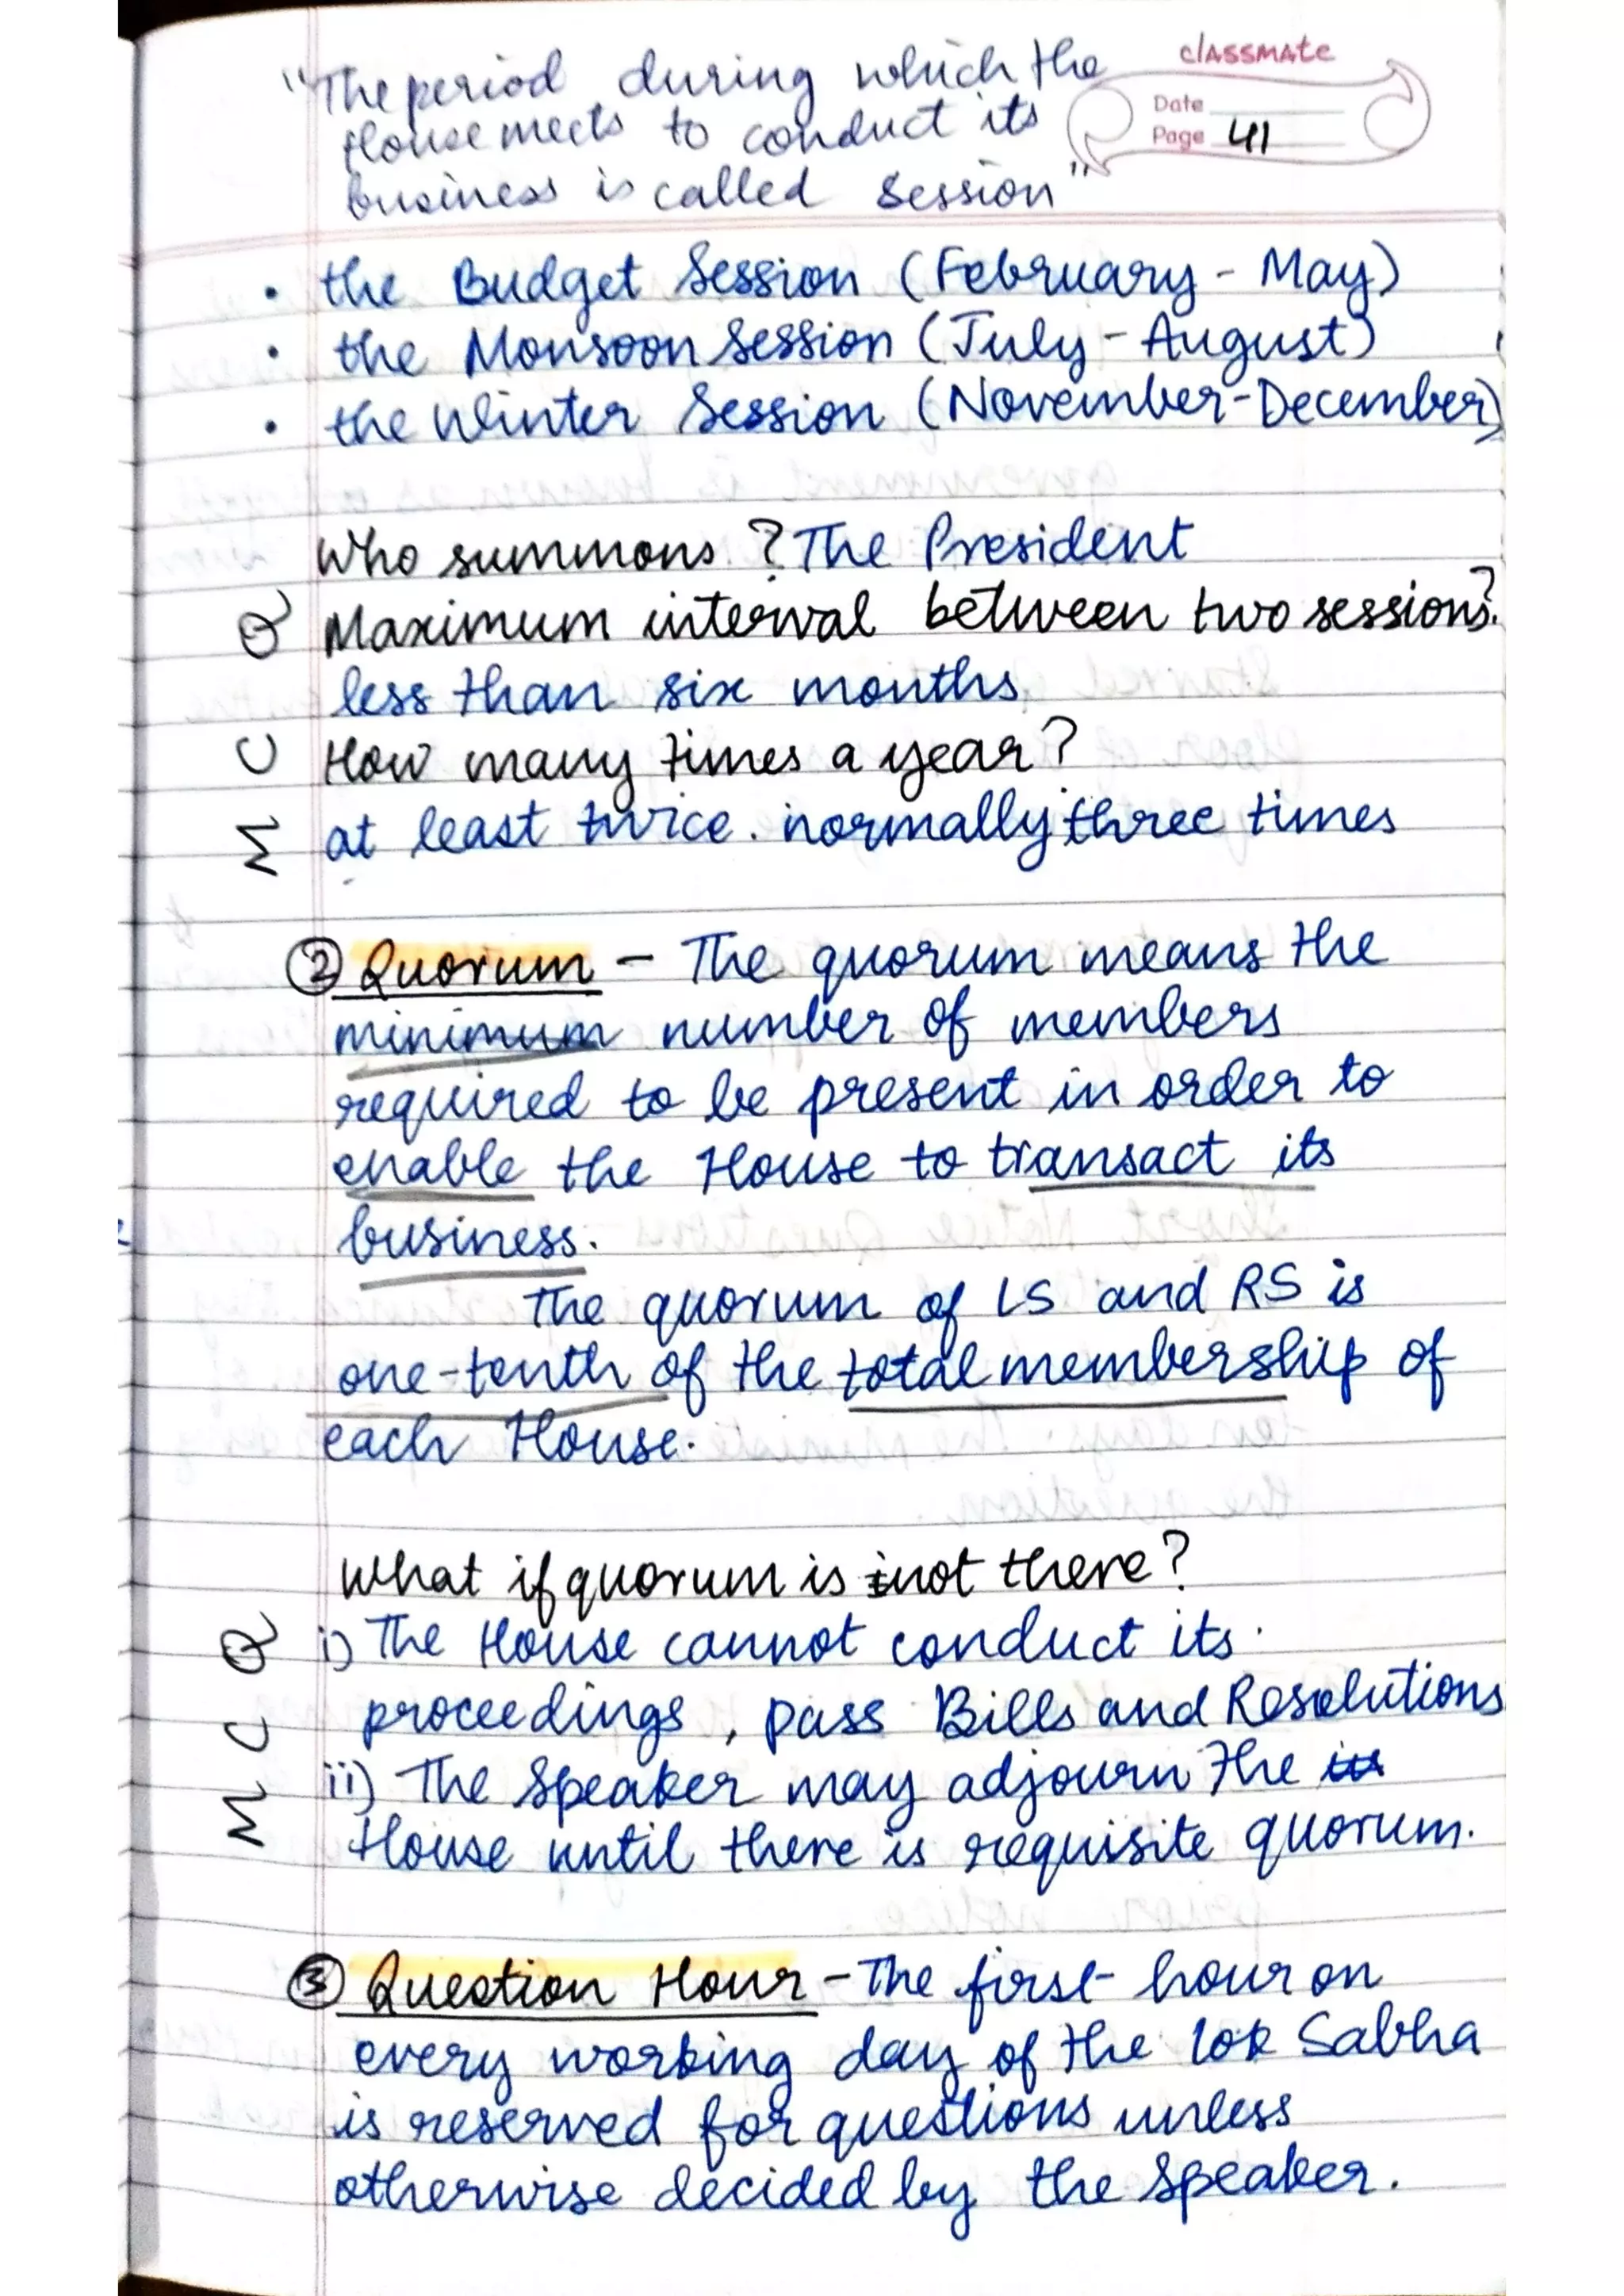 classmate
Date
Page 41
"The period during which the
House meets to conduct its
business is called session"
• the Budget Session (February - May)
• the Monsoon Session (July - August)
• the Winter Session (November-December)
Who summons ? The President
Maximum interval between two sessions?
less than six months
How many times a year?
at least twice. normally three times
MCQ
② Quorum – The quorum means the
minimum number of members
required to be present in order to
enable the House to transact its
business.
The quorum of LS and RS is
one-tenth of the total membership of
each House.
What if quorum is not there?
i) The House cannot conduct its
proceedings, pass Bills and Resolutions
ii) The Speaker may adjourn the
House until there is requisite quorum.
MCQ
③ Question Hour – The first hour on
every working day of the lok Sabha
is reserved for questions unless
otherwise decided by the Speaker.